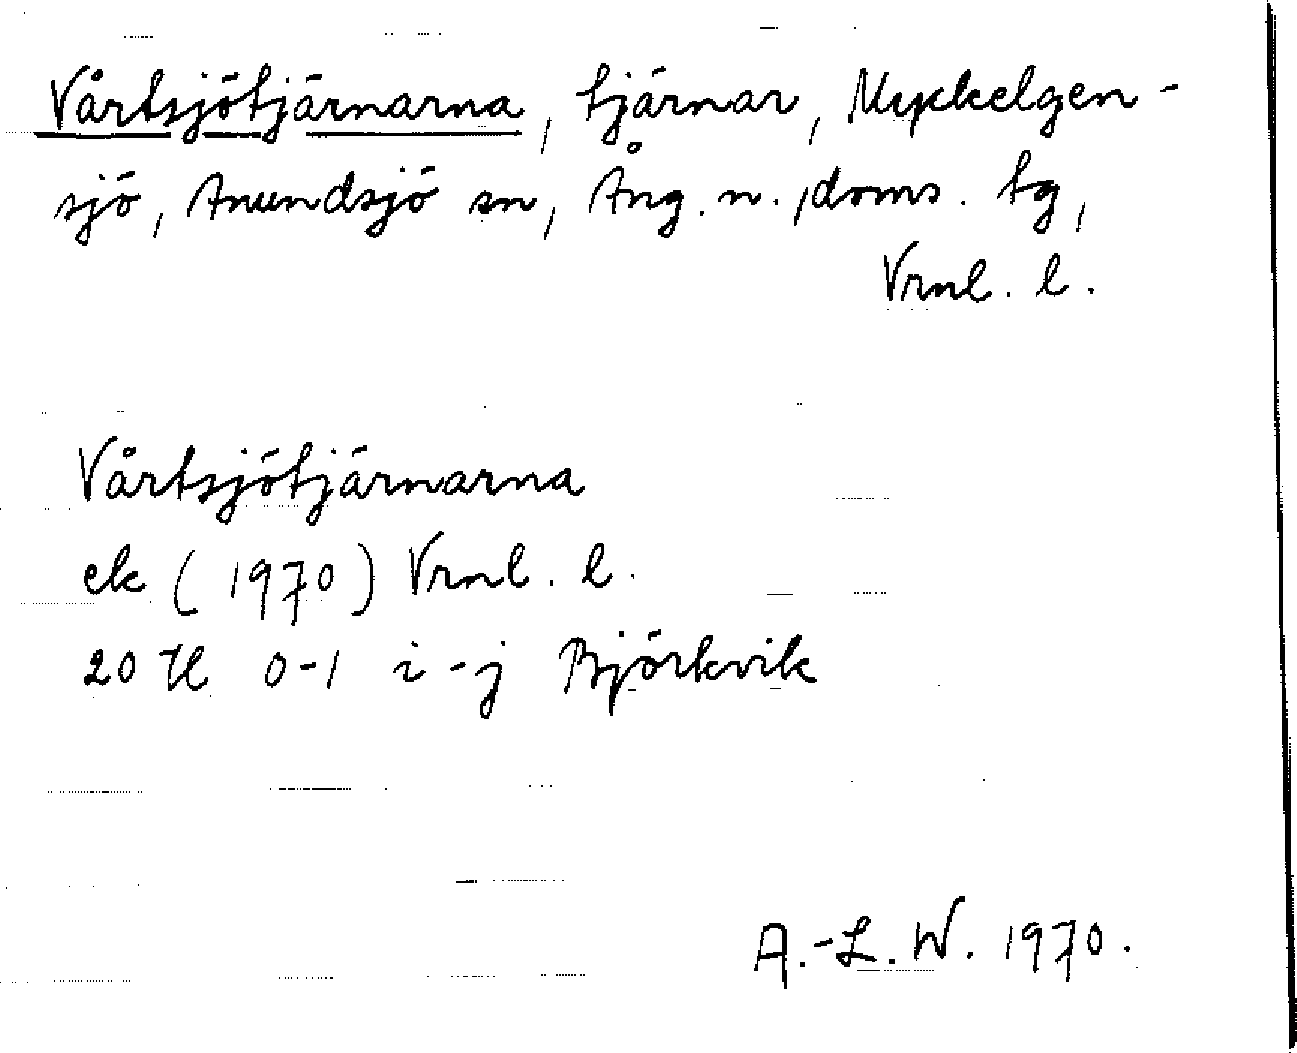 Vårtsjötjärnarna, tjärnar, Myckelgen-
sjö, Anundsjö sn, Ång. n. doms. tg,
Vrnl. l.
Vårtsjötjärnarna
ek (1970) Vrnl. l.
20 H 0-1 i-j Björkvik
A.-L. W. 1970.